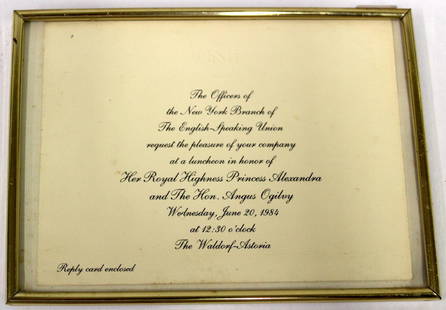 The Officers of
the New York Branch of
The English-Speaking Union
request the pleasure of your company
at a luncheon in honor of
Her Royal Highness Princess Alexandra
and The Hon. Angus Ogilvy
Wednesday, June 20, 1984
at 12:30 o'clock
The Waldorf-Astoria
Reply card enclosed